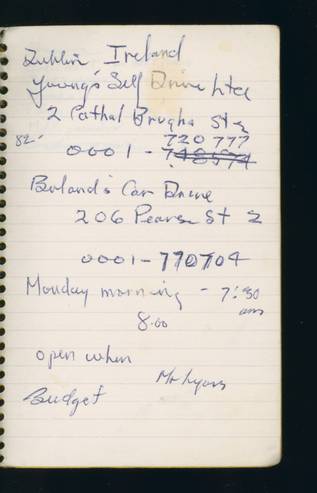 Dublin Ireland
Young's Self Drive Ltd
2 Cathal Brugha St 2
720 777
82-
0001 - 748574
Boland's Car Drive
206 Pearse St 2
0001-770704
Monday morning - 7:30
am
8.00
open when
Mr Lyons
Budget